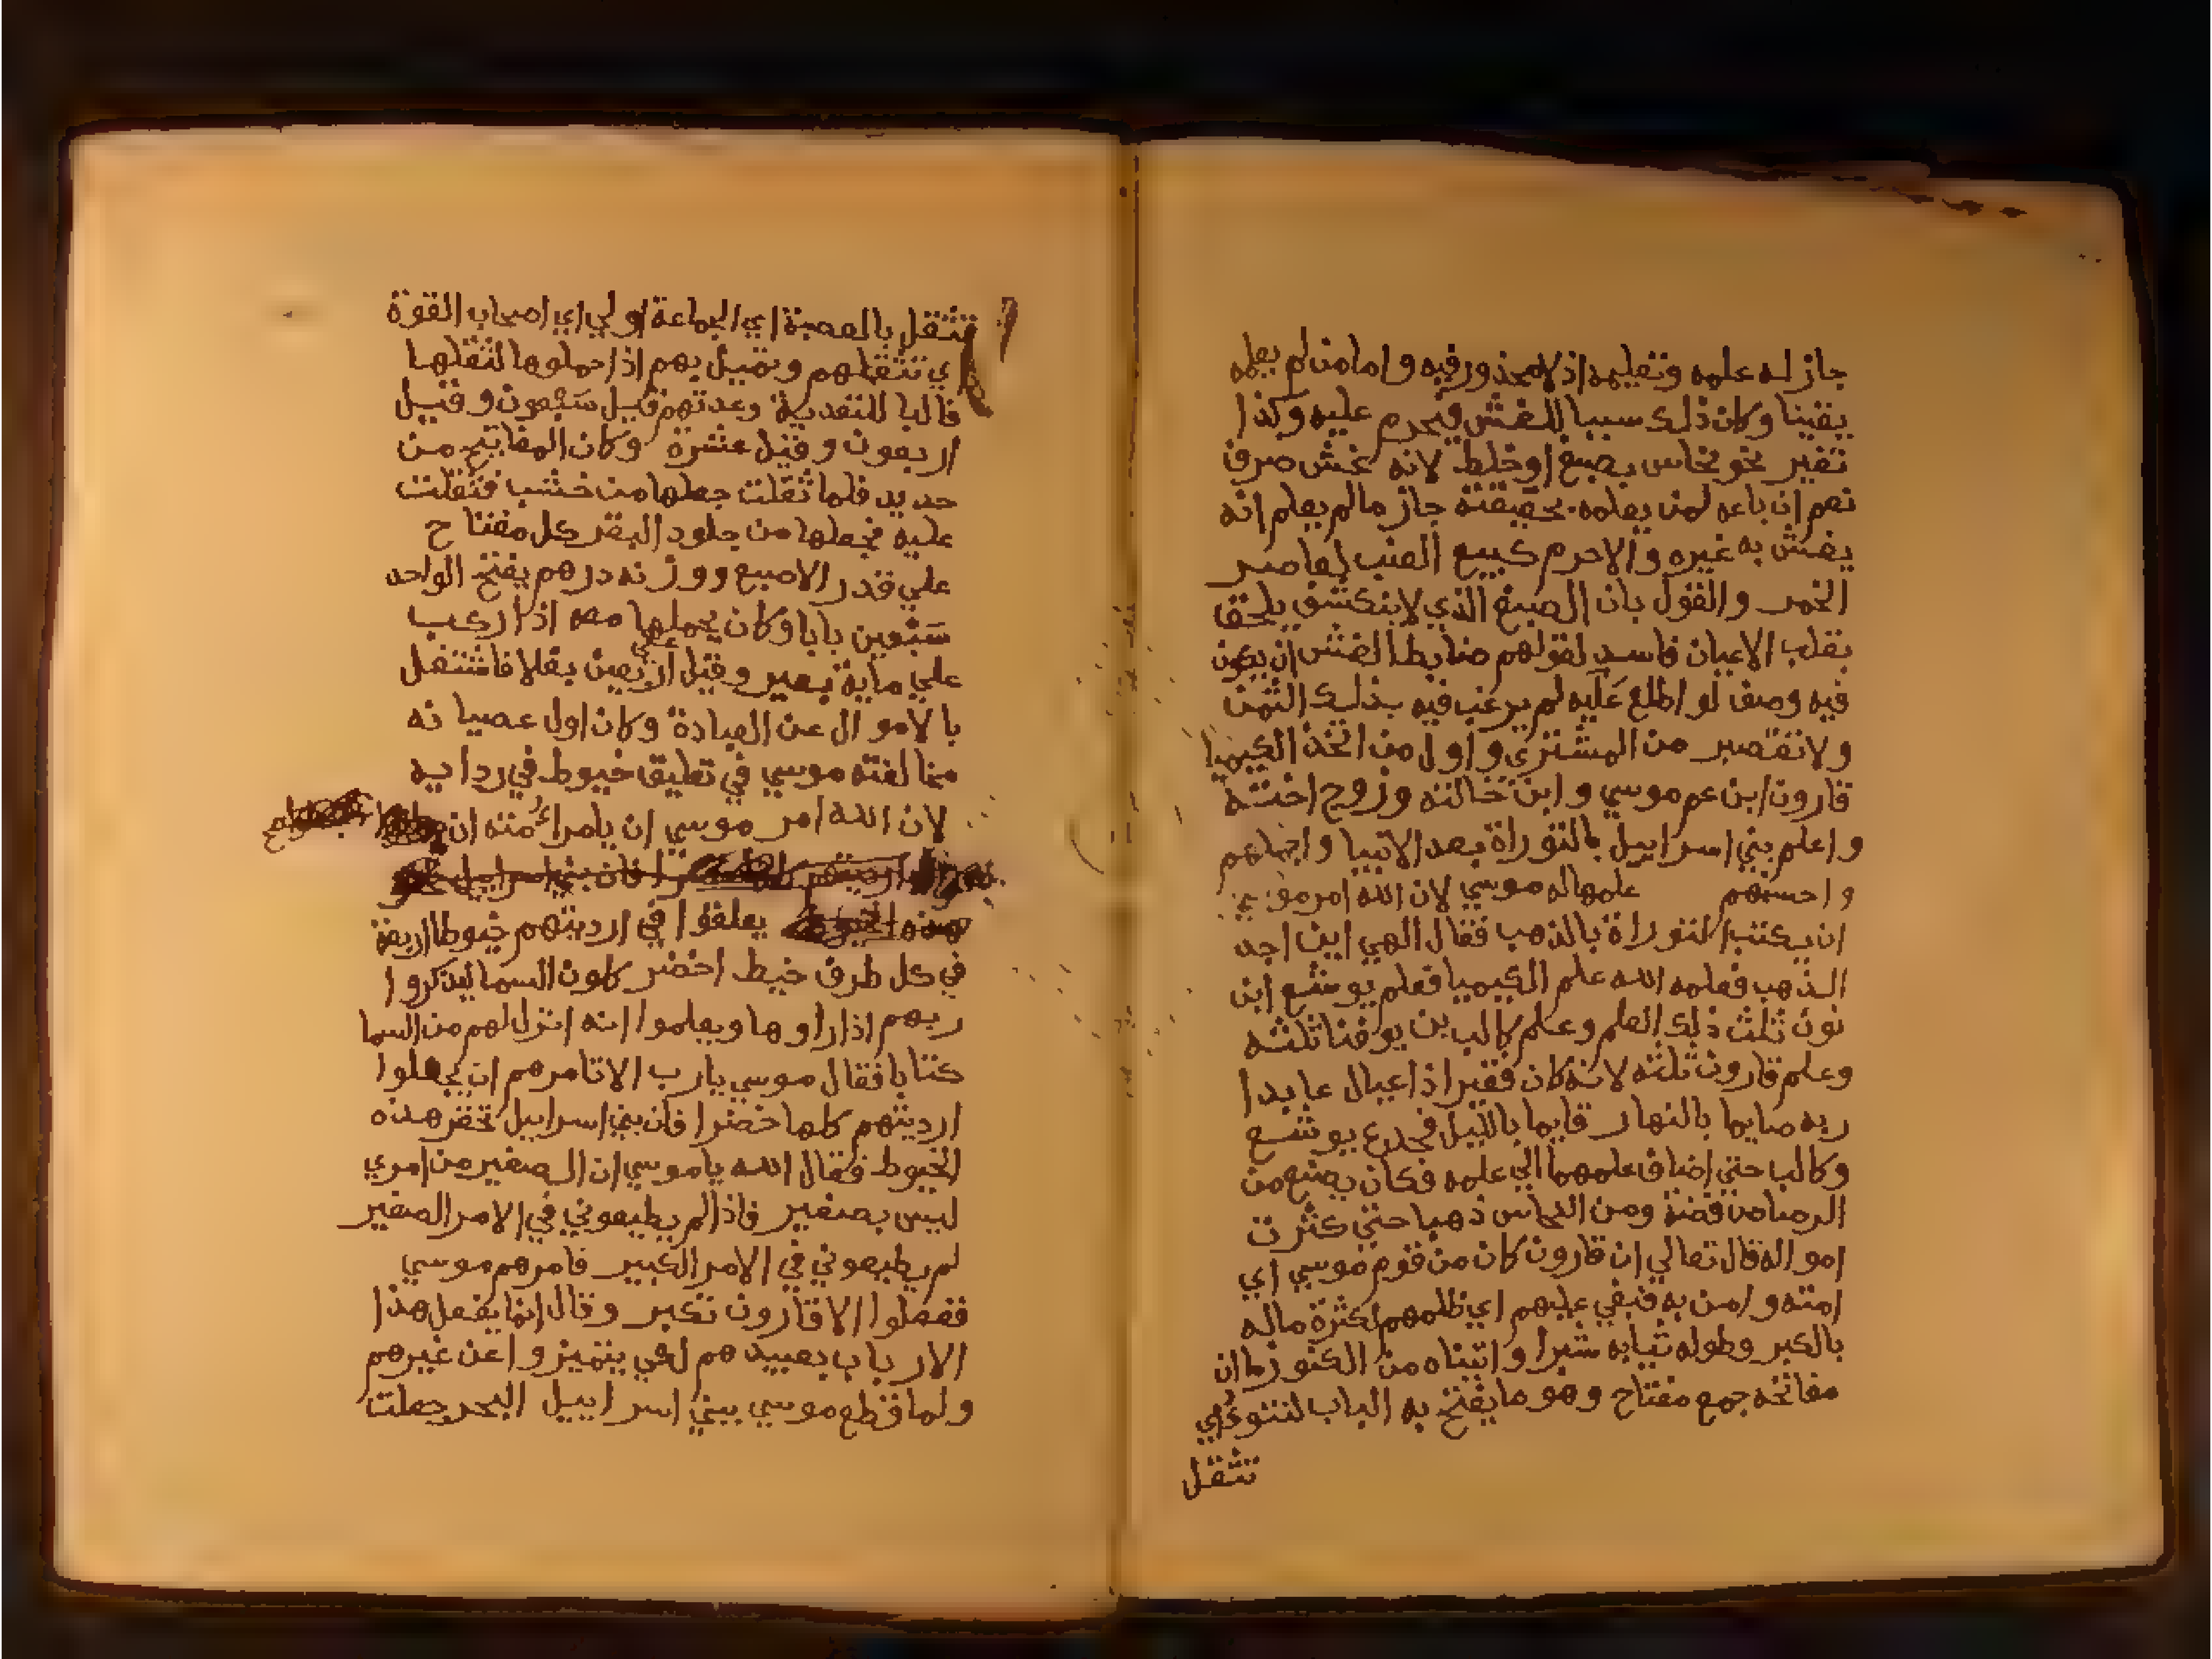 جاز له علمه وتعليمه اذ لا محذور فيه واما من لم يعلمه
يقينا وكان ذلك سببا للغش فيحرم عليه وكذا
تغير نحو نحاس بصبغ او خلط لانه غش صرف
نعم ان باعه لمن يعلمه بحقيقته جاز ما لم يعلم انه
يغش به غيره والاحرم كبيع العنب لعاصر
الخمر والقول بان الصبغ الذي لا ينكشف يلحق
بقلب الاعيان فاسد لقولهم ضابط الغش ان يكون
فيه وصف لو اطلع عليه لم يرغب فيه بذلك الثمن
ولا تقتصر من المشتري واول من اتخذ الكيميا
قارون ابن عم موسي وابن خالته وزوج اخته
واعلم بني اسراييل بالتوراة بعد الانبيا واجملهم
واحسنهم علمها له موسي لان الله امر موسي
ان يكتب التوراة بالذهب فقال الهي اين اجد
الذهب فعلمه الله علم الكيميا فعلم يوشع ابن
نون ثلث ذلك العلم وعلم كالب بن يوفنا ثلثه
وعلم قارون ثلثه لانه كان فقيرا ذا عيال عابدا
ربه صايما بالنهار قايما بالليل فخدع يوشع
وكالب حتي اضاف علمهما الي علمه فكان يصنع من
الرصاص فضة ومن النحاس ذهبا حتي كثرت
امواله قال تعالي ان قارون كان من قوم موسي اي
امته وامن به فبغي عليهم اي ظلمهم لكثرة ماله
بالكبر وطوله ثيابه شبرا واتيناه من الكنوز ما ان
مفاتحه جمع مفتاح وهو ما يفتح به الباب لتنوء اي
تثقل
تثقل بالعصبة اي الجماعة اولي اي اصحاب القوة
اي تثقلهم وتميل بهم اذا حملوها لثقلها
فالبا للتعدية وعدتهم قيل سبعون وقيل
اربعون وقيل عشرة وكان المفاتيح من
حديد فلما ثقلت جعلها من خشب فثقلت
عليه فجعلها من جلود البقر كل مفتاح
علي قدر الاصبع ووزنه درهم يفتح الواحد
سبعين بابا وكان يحملها معه اذا ركب
علي
علي ماية بعير وقيل اربعين بغلا فاشتغل
بالاموال عن العبادة وكان اول عصيانه
مخالفته موسي في تعليق خيوط في ردايه
لان الله امر موسي ان يامر امته ان
ارديتهم كلها خضرا فان بني اسراييل تحقر
هذه الخيوط يعلقوا في ارديتهم خيوطا اربعة
في كل طرف خيط اخضر كلون السما ليذكروا
ربهم اذا راوها ويعلموا انه انزل لهم من السما
كتابا فقال موسي يارب الا تامرهم ان يجعلوا
ارديتهم كلها خضرا فان بني اسراييل تحقر هذه
الخيوط فقال الله يا موسي ان الصغير من امري
ليس بصغير فاذا لم يطيعوني في الامر الصغير
لم يطيعوني في الامر الكبير فامرهم موسي
ففعلوا الا قارون تكبر وقال انما يفعل هذا
الارباب بعبيدهم لكي يتميزوا عن غيرهم
ولما قطع موسي ببني اسراييل البحر جعلت